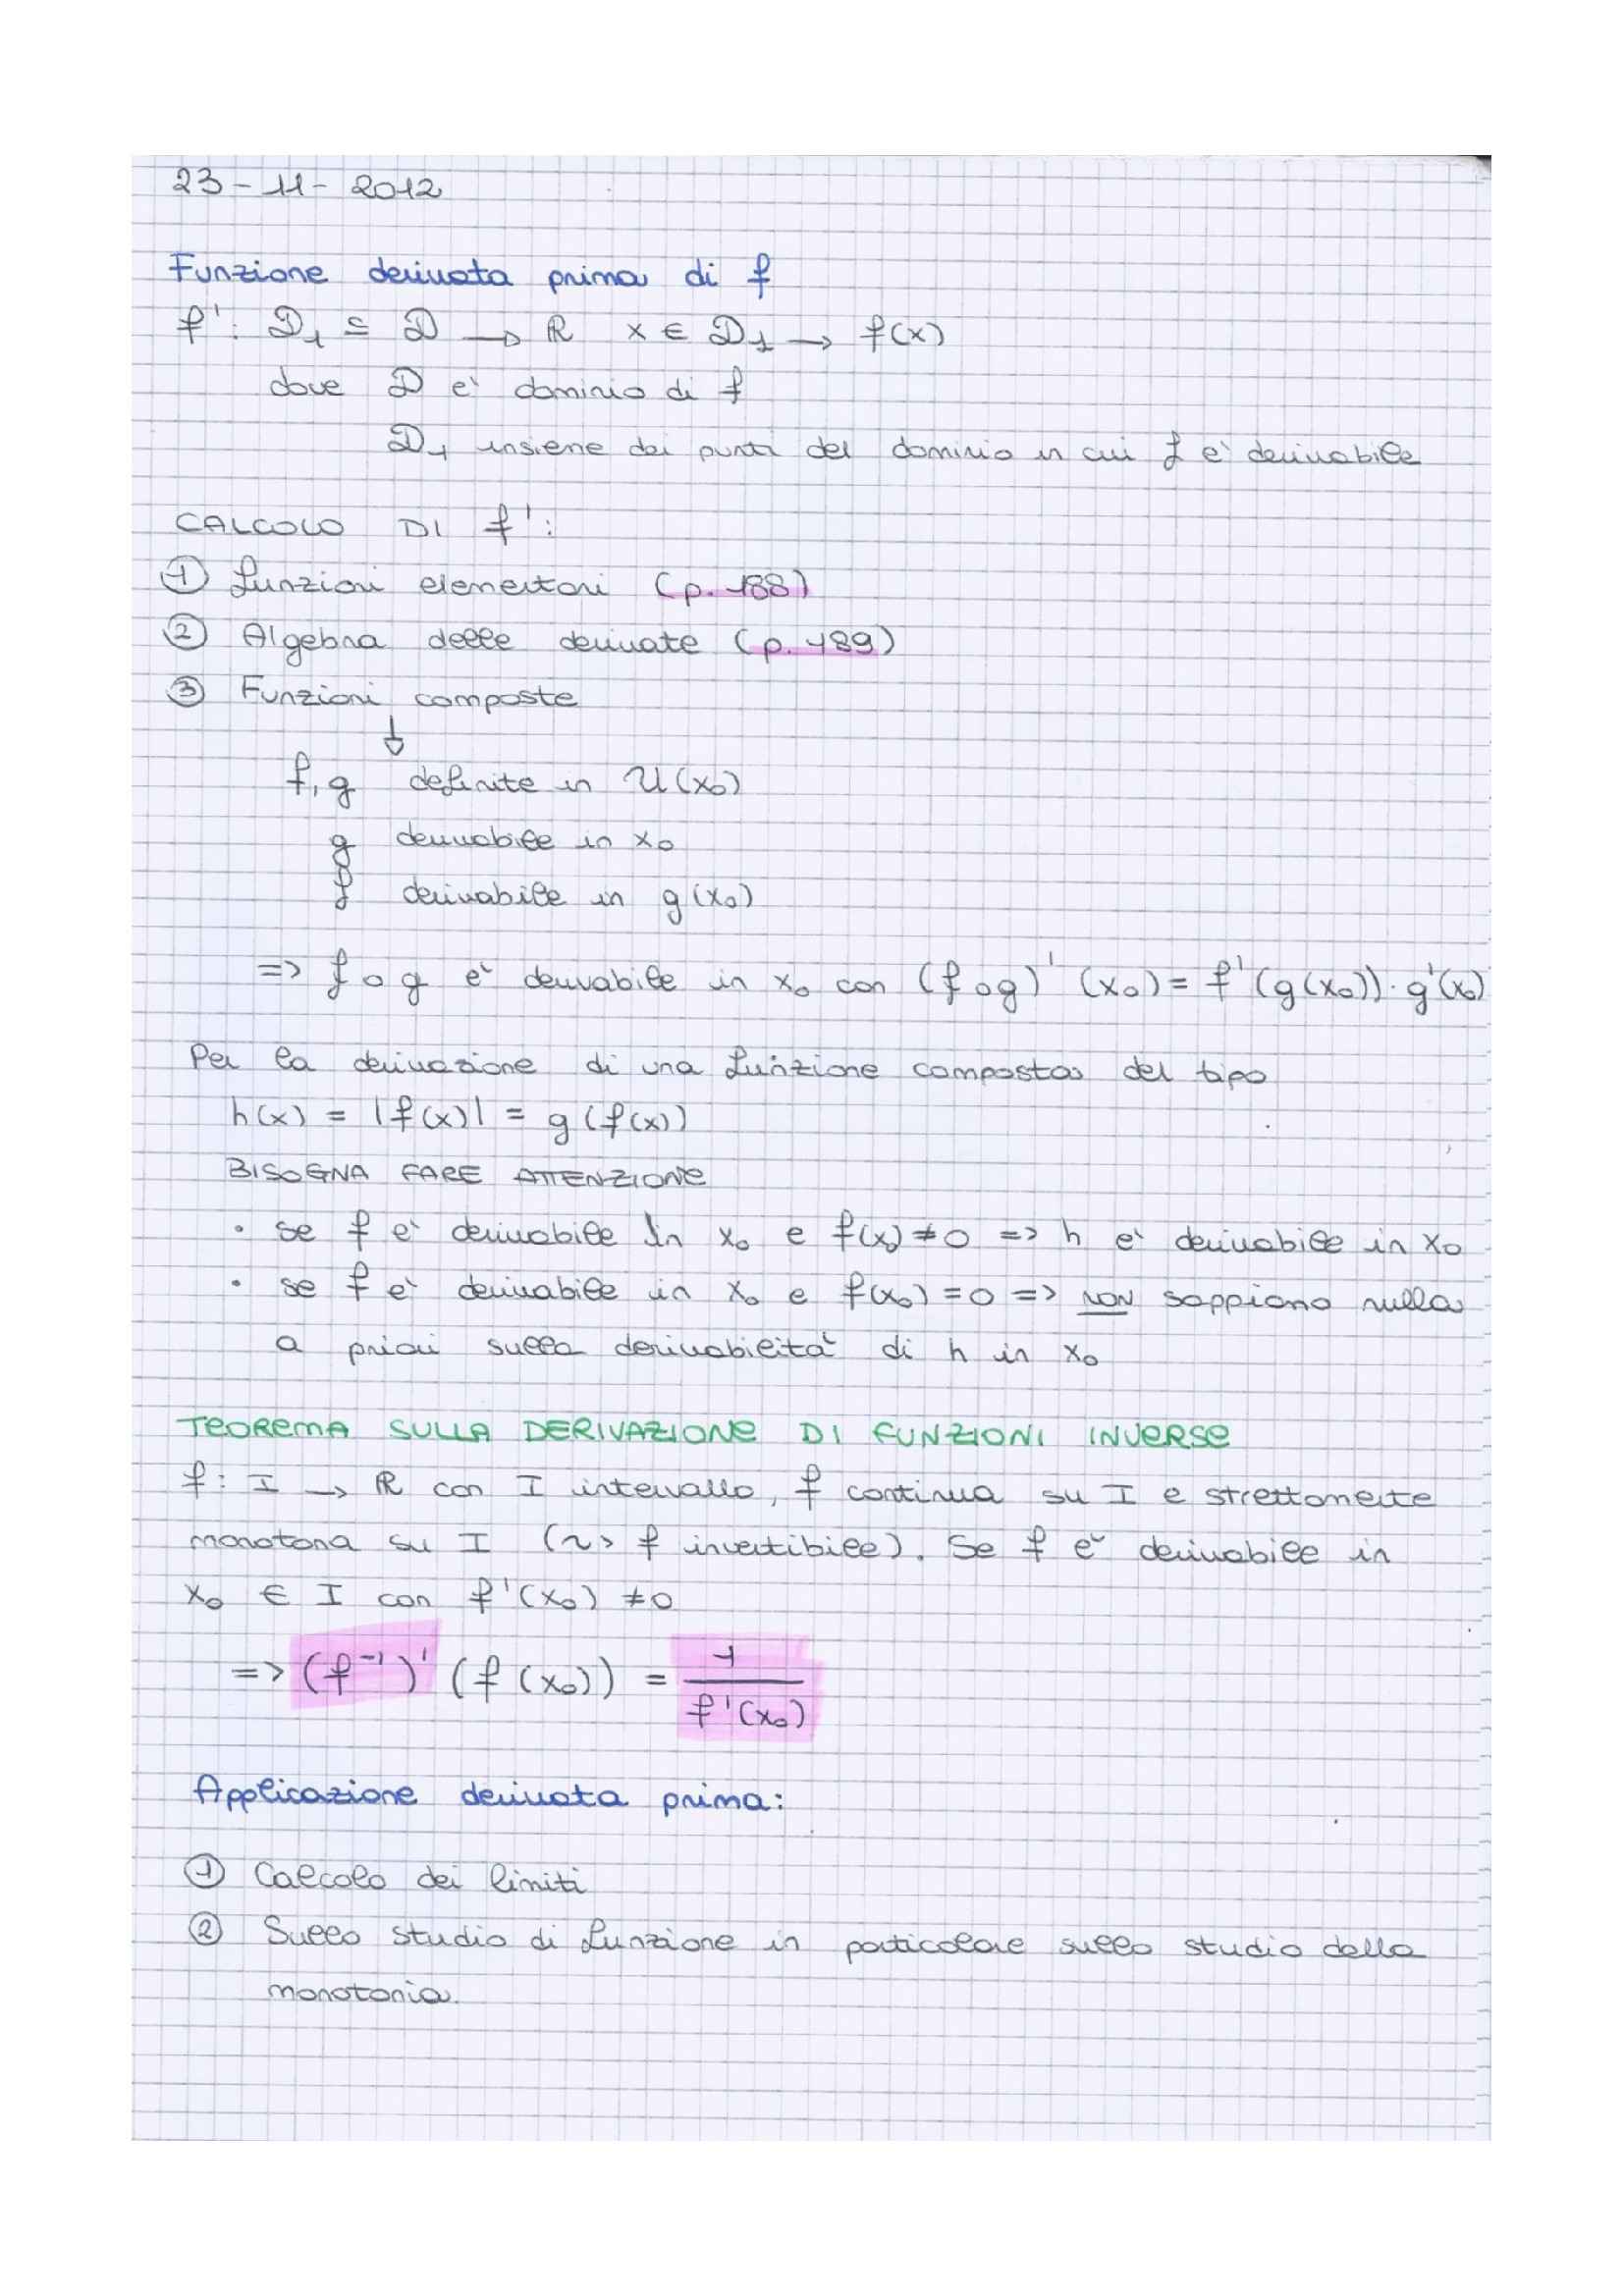 23-11-2012
Funzione derivata prima di f
f': D₁ ⊆ D → ℝ x ∈ D₁ → f(x)
dove D è dominio di f
D₁ insieme dei punti del dominio in cui f è derivabile
CALCOLO DI f':
① funzioni elementari (p. 188)
② Algebra delle derivate (p. 189)
③ Funzioni composte
↓
f, g definite in U(x₀)
g derivabile in x₀
f derivabile in g(x₀)
=> f o g è derivabile in x₀ con (f o g)'(x₀) = f'(g(x₀)) · g'(x₀)
Per la derivazione di una funzione composta del tipo
h(x) = |f(x)| = g(f(x))
BISOGNA FARE ATTENZIONE
• se f è derivabile in x₀ e f(x₀) ≠ 0 => h è derivabile in x₀
• se f è derivabile in x₀ e f(x₀) = 0 => NON sappiamo nulla
a priori sulla derivabilità di h in x₀
TEOREMA SULLA DERIVAZIONE DI FUNZIONI INVERSE
f: I → ℝ con I intervallo, f continua su I e strettamente
monotona su I (~> f invertibile). Se f è derivabile in
x₀ ∈ I con f'(x₀) ≠ 0
=> (f⁻¹)'(f(x₀)) = 1 / f'(x₀)
Applicazione derivata prima:
① Calcolo dei limiti
② Sullo studio di funzione in particolare sullo studio della
monotonia.